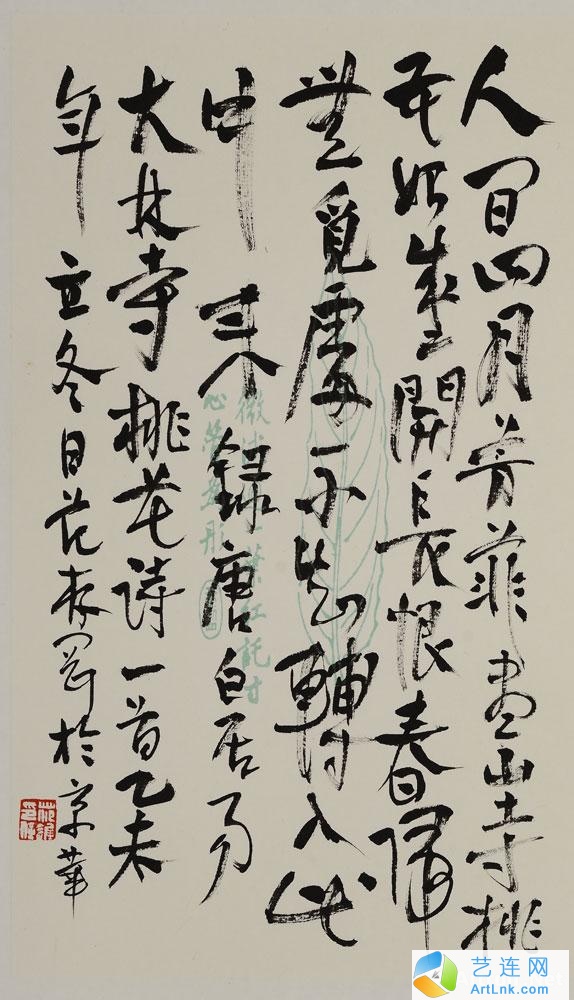 人間四月芳菲盡山寺桃
花始盛開長恨春歸
無覓處不知轉入此
中来錄唐白居易
大林寺桃花诗一首乙未
年立冬日范於京華
葉紅託寸
心
艺连网
ArtLnk.com